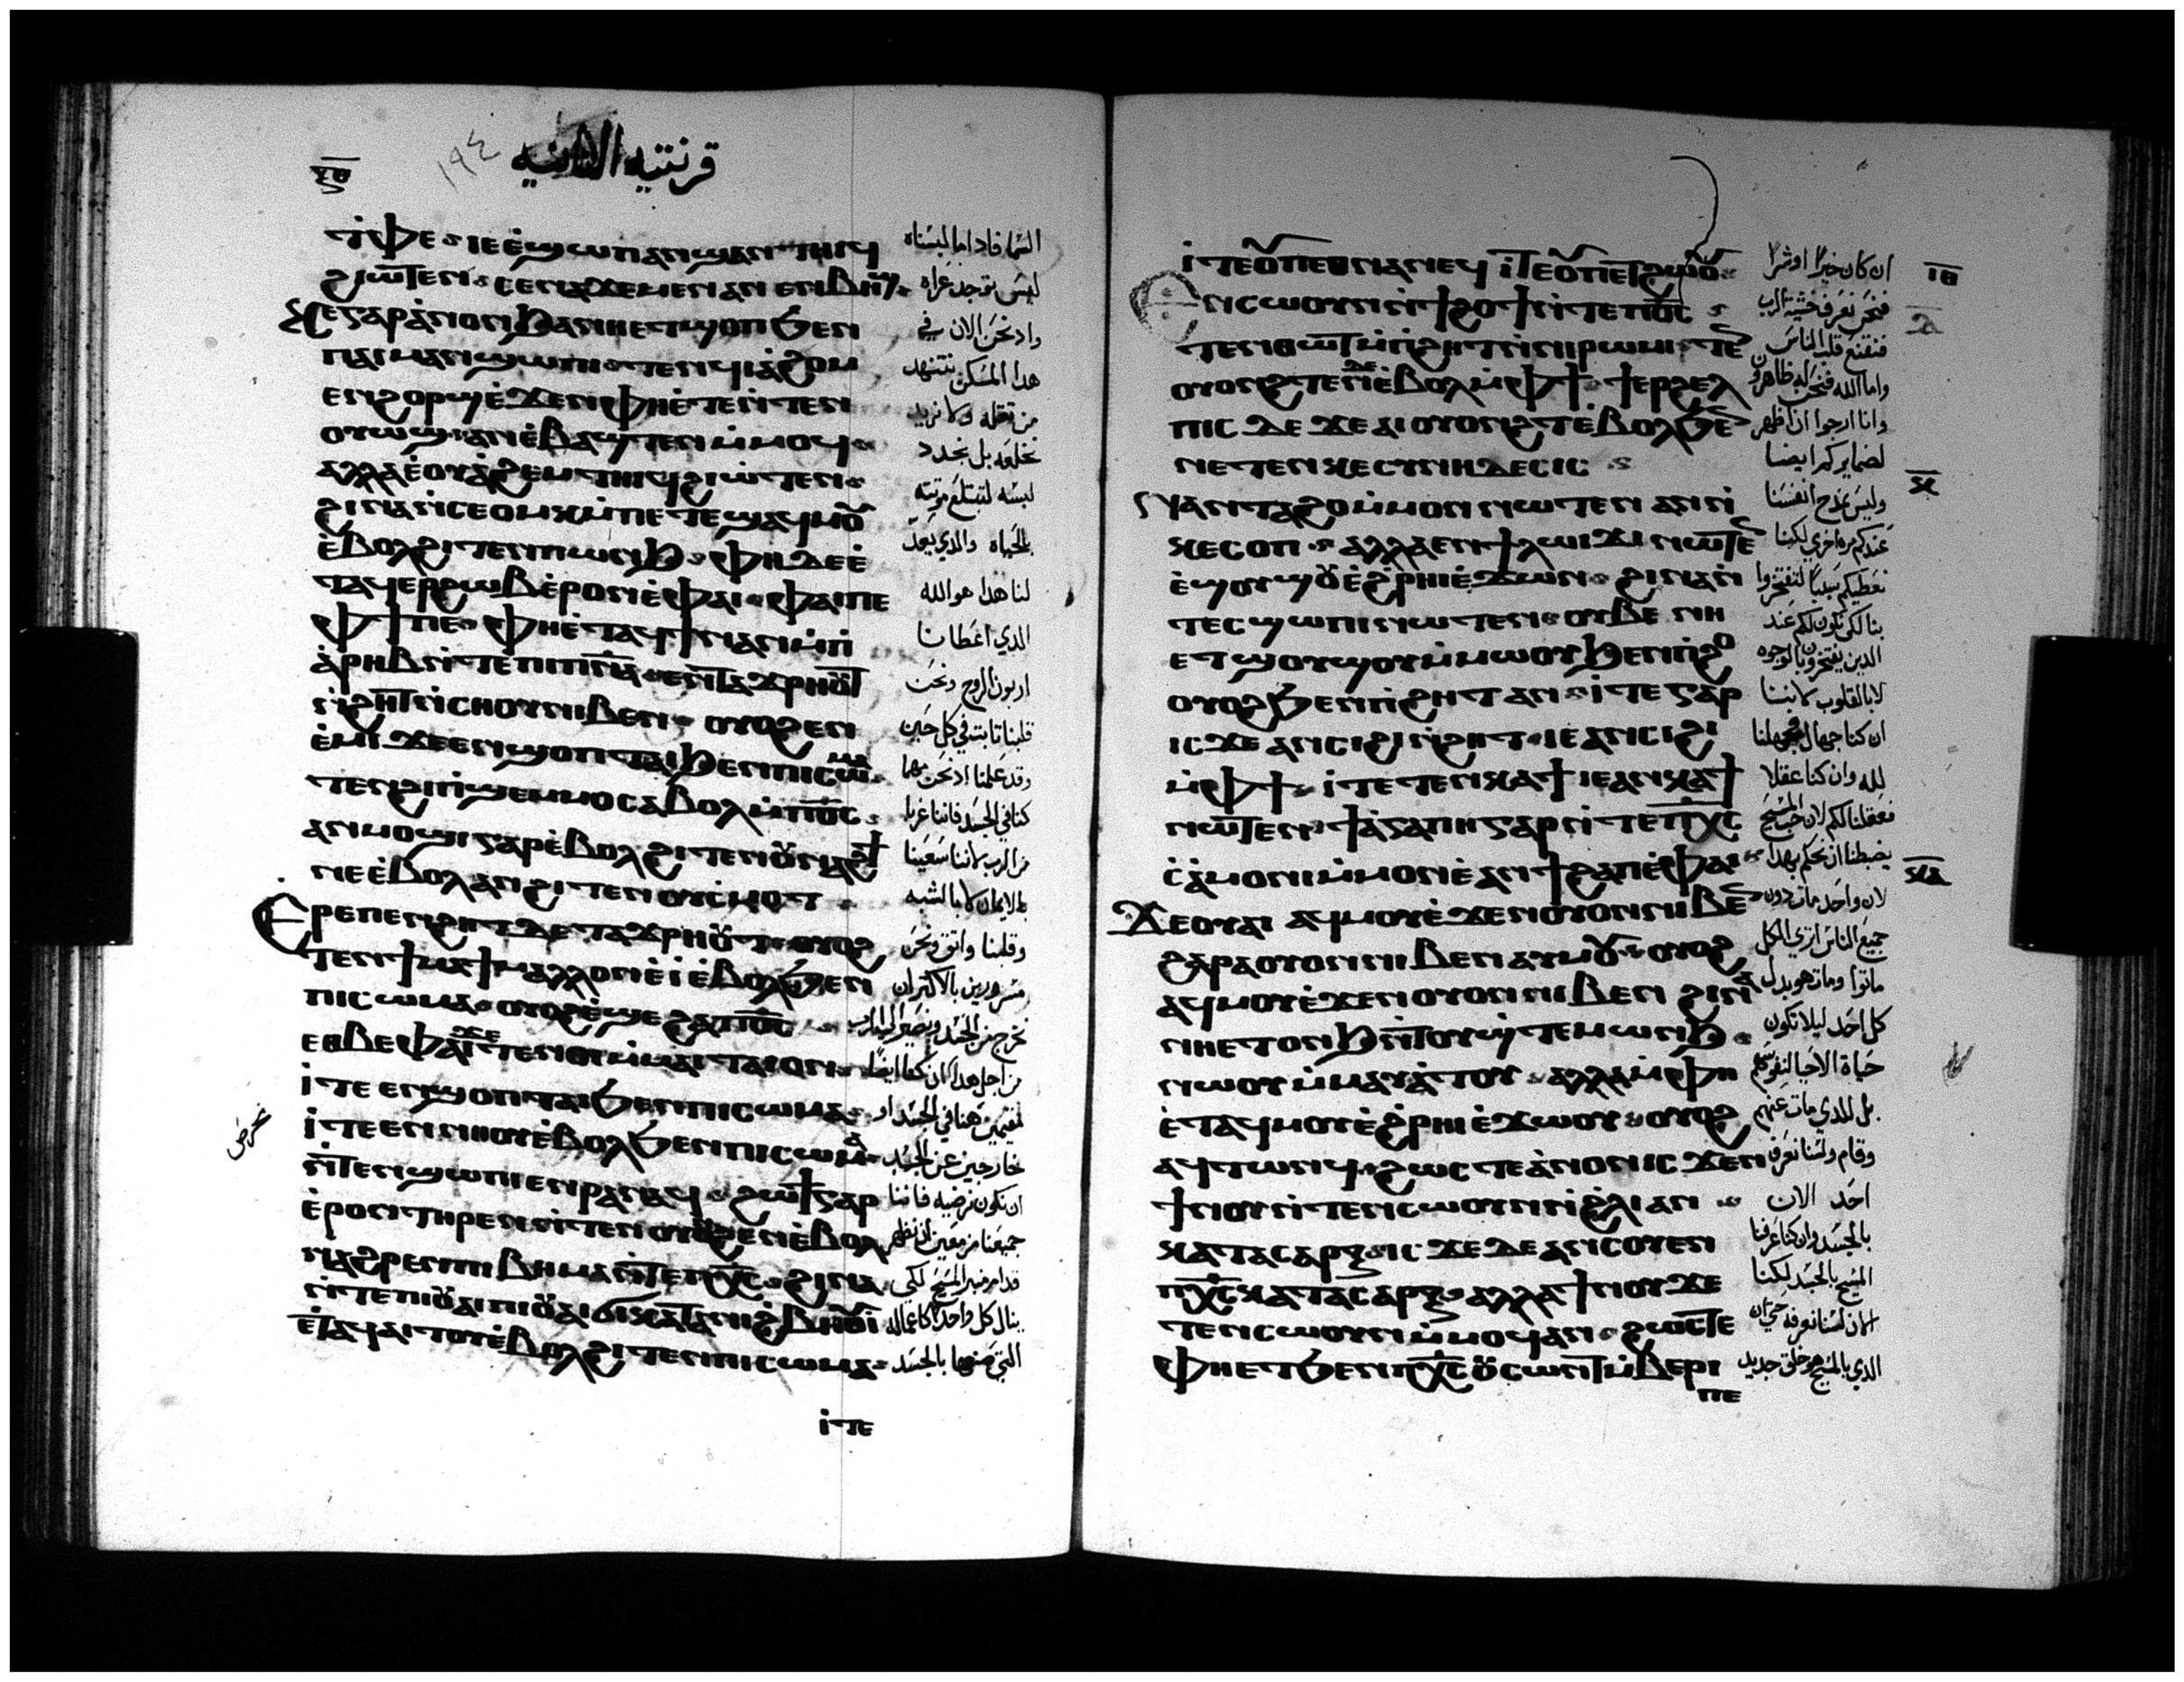 قرنتيه الثانيه
١٩٤
ⲧⲫⲉ ⲓⲉ ⲉϣⲱⲡ ⲁⲛϣⲁⲛⲧⲏⲓϥ
السما فاذاما لبسناه
ϩⲓⲱⲧⲉⲛ ⲥⲉⲛⲁϫⲉⲙⲉⲛ ⲁⲛ ⲉⲛⲃⲏϣ
ليس نوجد عراه
ⲕⲉ ⲅⲁⲣ ⲁⲛⲟⲛ ϧⲁ ⲛⲏⲉⲧϣⲟⲡ ϧⲉⲛ
واذ نحن الان في
ⲡⲁⲓⲙⲁⲛϣⲱⲡⲓ ⲧⲉⲛϥⲓⲁϩⲟⲙ
هدا المسكن نتنهد
ⲉⲛϩⲟⲣϣ ⲉϫⲉⲛ ⲫⲏⲉⲧⲉⲛⲧⲉⲛ
من ثقله ولا نريد
ⲟⲩⲱϣ ⲁⲛ ⲉⲃⲁϣⲧⲉⲛ ⲙⲙⲟϥ
نخلعه بل نجدد
ⲁⲗⲗⲁ ⲉⲟⲩⲁϩⲉⲙⲧⲏⲓϥ ϩⲓⲱⲧⲉⲛ
لبسه لتبتلع موتته
ϩⲓⲛⲁ ⲛⲥⲉⲟⲙⲕ ⲙⲡⲉⲧⲉϣⲁϥⲙⲟⲩ
بالحياه والدي يعد
ⲉⲃⲟⲗϩⲓⲧⲉⲛ ⲡⲱⲛϧ ⲫⲏ ⲇⲉ ⲉ
لنا هدا هو الله
ⲧⲁϥⲉⲣϩⲱⲃ ⲉⲣⲟⲛ ⲉⲫⲁⲓ ⲫⲁⲓ ⲡⲉ
الدي اعطانا
ⲫϯ ⲡⲉ ⲫⲏⲉⲧⲁϥϯ ⲛⲁⲛ ⲙⲡⲓ
اربون الروح ونحن
ⲁⲣⲏⲃ ⲛⲧⲉ ⲡⲓⲡⲛⲁ ⲉⲛⲧⲁϫⲣⲏⲟⲩⲧ
قلبنا ثابت في كل حين
ⲛϩⲏⲧ ⲛⲥⲏⲟⲩ ⲛⲓⲃⲉⲛ ⲟⲩⲟϩ ⲉⲛ
وقد علمنا اذ نحن مهما
ⲉⲙⲓ ϫⲉ ⲉⲛϣⲟⲡ ⲧⲁⲓ ϧⲉⲛ ⲡⲓⲥⲱⲙⲁ
كنا في الجسد فاننا غربا
ⲧⲉⲛϩⲓⲡϣⲉⲙⲙⲟ ⲥⲁⲃⲟⲗ ⲙⲡⲟⲥ
من الرب لاننا سعينا
ⲁⲛⲙⲟϣⲓ ⲅⲁⲣ ⲉⲃⲟⲗ ϩⲓⲧⲉⲛ ⲟⲩⲛⲁϩϯ
بالايمان لا بالشبه
ⲛⲉ ⲉⲃⲟⲗ ⲁⲛ ϩⲓⲧⲉⲛ ⲟⲩⲥⲙⲟⲧ
وقلبنا واثق ونحن
ⲉⲣⲉ ⲡⲉⲛϩⲏⲧ ⲇⲉ ⲧⲁϫⲣⲏⲟⲩⲧ ⲟⲩⲟϩ
مسرورين بالاكثر ان
ⲧⲉⲛϯⲙⲁϯ ⲙⲁⲗⲗⲟⲛ ⲉⲓ ⲉⲃⲟⲗϧⲉⲛ
نخرج من الجسد ونصير الى الرب
ⲡⲓⲥⲱⲙⲁ ⲟⲩⲟϩ ⲉϣⲉ ϩⲁ ⲡⲟⲥ
من اجل هدا ان كنا ايضا
ⲉⲑⲃⲉ ⲫⲁⲓ ⲇⲉ ⲧⲉⲛⲟⲓ ⲙⲙⲁⲓⲧⲁⲓⲟⲛ
مقيمين هنا في الجسد او
ⲓⲧⲉ ⲉⲛϣⲟⲡ ⲧⲁⲓ ϧⲉⲛ ⲡⲓⲥⲱⲙⲁ
خارجين عن الجسد
ⲓⲧⲉ ⲉⲛⲛⲏⲟⲩ ⲉⲃⲟⲗϧⲉⲛ ⲡⲓⲥⲱⲙⲁ
ان نكون نرضيه فاننا
ⲛⲧⲉⲛϣⲱⲡⲓ ⲉⲛⲣⲁⲛⲁϥ ϩⲱϯ ⲅⲁⲣ
جميعنا مزمعين ان نظهر
ⲉⲣⲟⲛ ⲧⲏⲣⲉⲛ ⲛⲧⲉⲛⲟⲩⲟⲛϩⲉⲛ ⲉⲃⲟⲗ
قدام منبر المسيح لكي
ⲛⲁϩⲣⲉⲛ ⲡⲓⲃⲏⲙⲁ ⲛⲧⲉ ⲡⲭⲥ ϩⲓⲛⲁ
ينال كل واحد كاعماله
ⲛⲧⲉ ⲡⲓⲟⲩⲁⲓ ⲡⲓⲟⲩⲁⲓ ϭⲓ ⲕⲁⲧⲁ ⲛⲓϩⲃⲏⲟⲩⲓ
التي صنعها بالجسد
ⲉⲧⲁϥⲁⲓⲧⲟⲩ ⲉⲃⲟⲗϩⲓⲧⲉⲛ ⲡⲓⲥⲱⲙⲁ
ⲓⲧⲉ
ⲓⲧⲉ ⲟⲩⲡⲉⲑⲛⲁⲛⲉϥ ⲓⲧⲉ ⲟⲩⲡⲉⲧϩⲱⲟⲩ
ان كان خيرا او شرا
ⲓⲑ
ⲉⲛⲥⲱⲟⲩⲛ ⲛϯϩⲟϯ ⲛⲧⲉ ⲡⲟⲥ
فنحن نعرف خشية الرب
ⲧⲉⲛⲑⲱⲧ ⲙⲡϩⲏⲧ ⲛⲛⲓⲣⲱⲙⲓ ⲧⲉ
فنقنع قلب الناس
ⲟⲩⲟⲛϩ ⲧⲉⲛ ⲇⲉ ⲉⲃⲟⲗ ⲙⲫϯ ϯⲉⲣϩⲉⲗ
واما الله فنحن له ظاهرون
ⲡⲓⲥ ⲇⲉ ϫⲉ ⲁⲓⲟⲩⲟⲛϩⲧ ⲉⲃⲟⲗϧⲉ
وانا ارجوا ان اظهر
ⲛⲉⲧⲉⲛⲕⲉⲥⲩⲛⲏⲇⲉⲥⲓⲥ
لضمايركم ايضا
ⲕ
ⲛⲁⲛⲧⲁϩⲟ ⲙⲙⲟⲛ ⲛⲱⲧⲉⲛ ⲁⲛ ⲛ
وليس نمدح انفسنا
ⲕⲉⲥⲟⲡ ⲁⲗⲗⲁ ⲉⲛϯⲗⲱⲓϫⲓ ⲛⲱⲧⲉ
عندكم مره اخرى لكننا
ⲉϣⲟⲩϣⲟⲩ ⲉϩⲣⲏⲓ ⲉϫⲱⲛ ϩⲓⲛⲁ ⲛ
نعطيكم سببا لتفتخروا
ⲧⲉⲥϣⲱⲡⲓ ⲛⲱⲧⲉⲛ ⲟⲩⲃⲉ ⲛⲏ
بنا لكي تكون لكم عند
ⲉⲧϣⲟⲩϣⲟⲩ ⲙⲙⲱⲟⲩ ϧⲉⲛ ⲡϩⲟ
الدين يفتخرون بالوجوه
ⲟⲩⲟϩ ϧⲉⲛ ⲡϩⲏⲧ ⲁⲛ ⲓⲧⲉ ⲅⲁⲣ
لا بالقلوب لاننا
ⲓⲥϫⲉ ⲁⲛⲥⲓϩⲓ ⲛϩⲏⲧ ⲓⲉ ⲁⲛⲥⲓϩⲓ
ان كنا جهال فجهلنا
ⲙⲫϯ ⲓⲧⲉ ⲧⲉⲛⲕⲁϯ ⲓⲉ ⲁⲛⲕⲁϯ
لله وان كنا عقلا
ⲛⲱⲧⲉⲛ ϯⲁⲅⲁⲡⲏ ⲅⲁⲣ ⲛⲧⲉ ⲡⲭⲥ
فعقلنا لكم لان حب المسيح
ⲥⲁⲙⲟⲛⲓ ⲙⲙⲟⲛ ⲉⲁⲛϯϩⲁⲡ ⲉⲫⲁⲓ
يضبطنا ان نحكم بهدا
ⲕⲁ
ϫⲉ ⲟⲩⲁⲓ ⲁϥⲙⲟⲩ ⲉϫⲉⲛ ⲟⲩⲟⲛ ⲛⲓⲃⲉ
لان واحد مات دون
ϩⲁⲣⲁ ⲟⲩⲟⲛ ⲛⲓⲃⲉⲛ ⲁⲩⲙⲟⲩ ⲟⲩⲟϩ
جميع الناس اترى الكل
ⲁϥⲙⲟⲩ ⲉϫⲉⲛ ⲟⲩⲟⲛ ⲛⲓⲃⲉⲛ ϩⲓⲛⲁ
ماتوا ومات هو بدل
ⲛⲏⲉⲧⲟⲛϧ ⲛⲧⲟⲩϣⲧⲉⲙⲱⲛϧ
كل احد ليلا تكون
ⲛⲱⲟⲩ ⲙⲙⲁⲩⲁⲧⲟⲩ ⲁⲗⲗⲁ ⲙⲫⲏ
حياة الاحيا لنفوسهم
ⲉⲧⲁϥⲙⲟⲩ ⲉϩⲣⲏⲓ ⲉϫⲱⲟⲩ ⲟⲩⲟϩ
بل للدي مات عنهم
ⲁϥⲧⲱⲛϥ ϩⲱⲥⲧⲉ ⲁⲛⲟⲛ ⲓⲥϫⲉⲛ
وقام ولسنا نعرف
ϯⲛⲟⲩ ⲛⲧⲉⲛⲥⲱⲟⲩⲛ ⲛϩⲗⲓ ⲁⲛ
احد الان
ⲕⲁⲧⲁ ⲥⲁⲣⲝ ⲓⲥϫⲉ ⲇⲉ ⲁⲛⲥⲟⲩⲉⲛ
بالجسد وان كنا عرفنا
ⲡⲭⲥ ⲕⲁⲧⲁ ⲥⲁⲣⲝ ⲁⲗⲗⲁ ϯⲛⲟⲩ ϫⲉ
المسيح بالجسد لكننا
ⲧⲉⲛⲥⲱⲟⲩⲛ ⲙⲙⲟϥ ⲁⲛ ϩⲱⲥⲧⲉ
الان لسنا نعرفه حتى ان
ⲫⲏⲉⲧϧⲉⲛ ⲡⲭⲥ ⲟⲩⲥⲱⲛⲧ ⲙⲃⲉⲣⲓ
الدي بالمسيح هو خلق جديد
ⲡⲉ